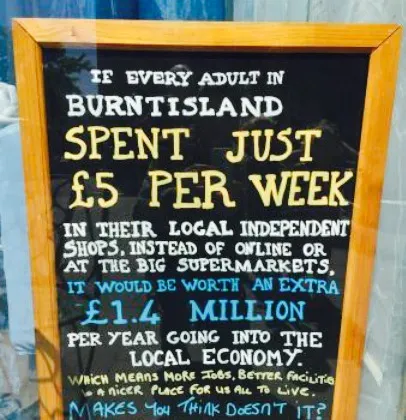 IF EVERY ADULT IN
BURNTISLAND
SPENT JUST
£5 PER WEEK
IN THEIR LOCAL INDEPENDENT
SHOPS, INSTEAD OF ONLINE OR
AT THE BIG SUPERMARKETS,
IT WOULD BE WORTH AN EXTRA
£1.4 MILLION
PER YEAR GOING INTO THE
LOCAL ECONOMY.
WHICH MEANS MORE JOBS, BETTER FACILITIE
& A NICER PLACE FOR US ALL TO LIVE.
MAKES YOU THINK DOESN'T IT?